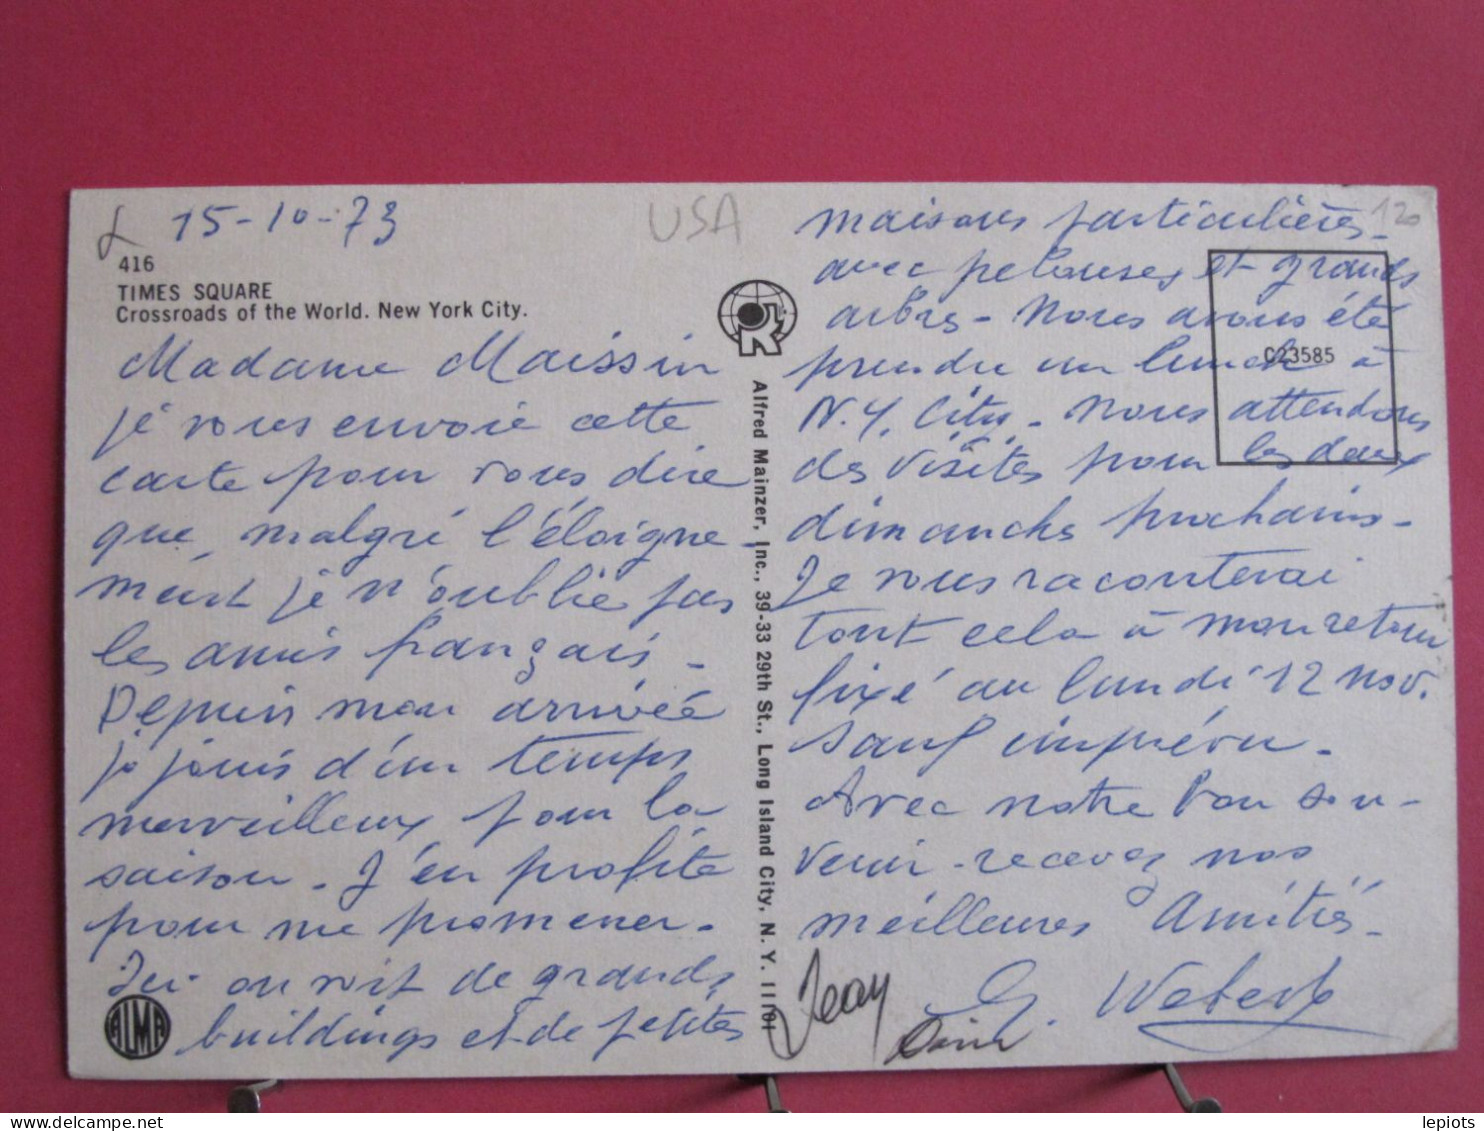 L 15-10-73
USA
416
TIMES SQUARE
Crossroads of the World. New York City.
Madame Maissin
je vous envoie cette
carte pour vous dire
que, malgré l'éloigne-
ment je n'oublie pas
les amis français -
Depuis mon arrivée
je jouis d'un temps
merveilleux pour la
saison - J'en profite
pour me promener -
Ici on voit de grands
buildings et de petites
ALMA
Alfred Mainzer, Inc., 39-33 29th St., Long Island City, N. Y. 11101
120
maisons particulières -
avec pelouses et grands
arbres - Nous avons été
C23585
prendre un lunch à
N.Y. City - Nous attendons
des visites pour les deux
dimanches prochains -
Je vous raconterai
tout cela à mon retour
fixé au lundi 12 nov.
sauf imprévu -
Avec notre bon sou-
venir - recevez nos
meilleures Amitiés -
Jean
G. Weber
lepiots
delcampe.net